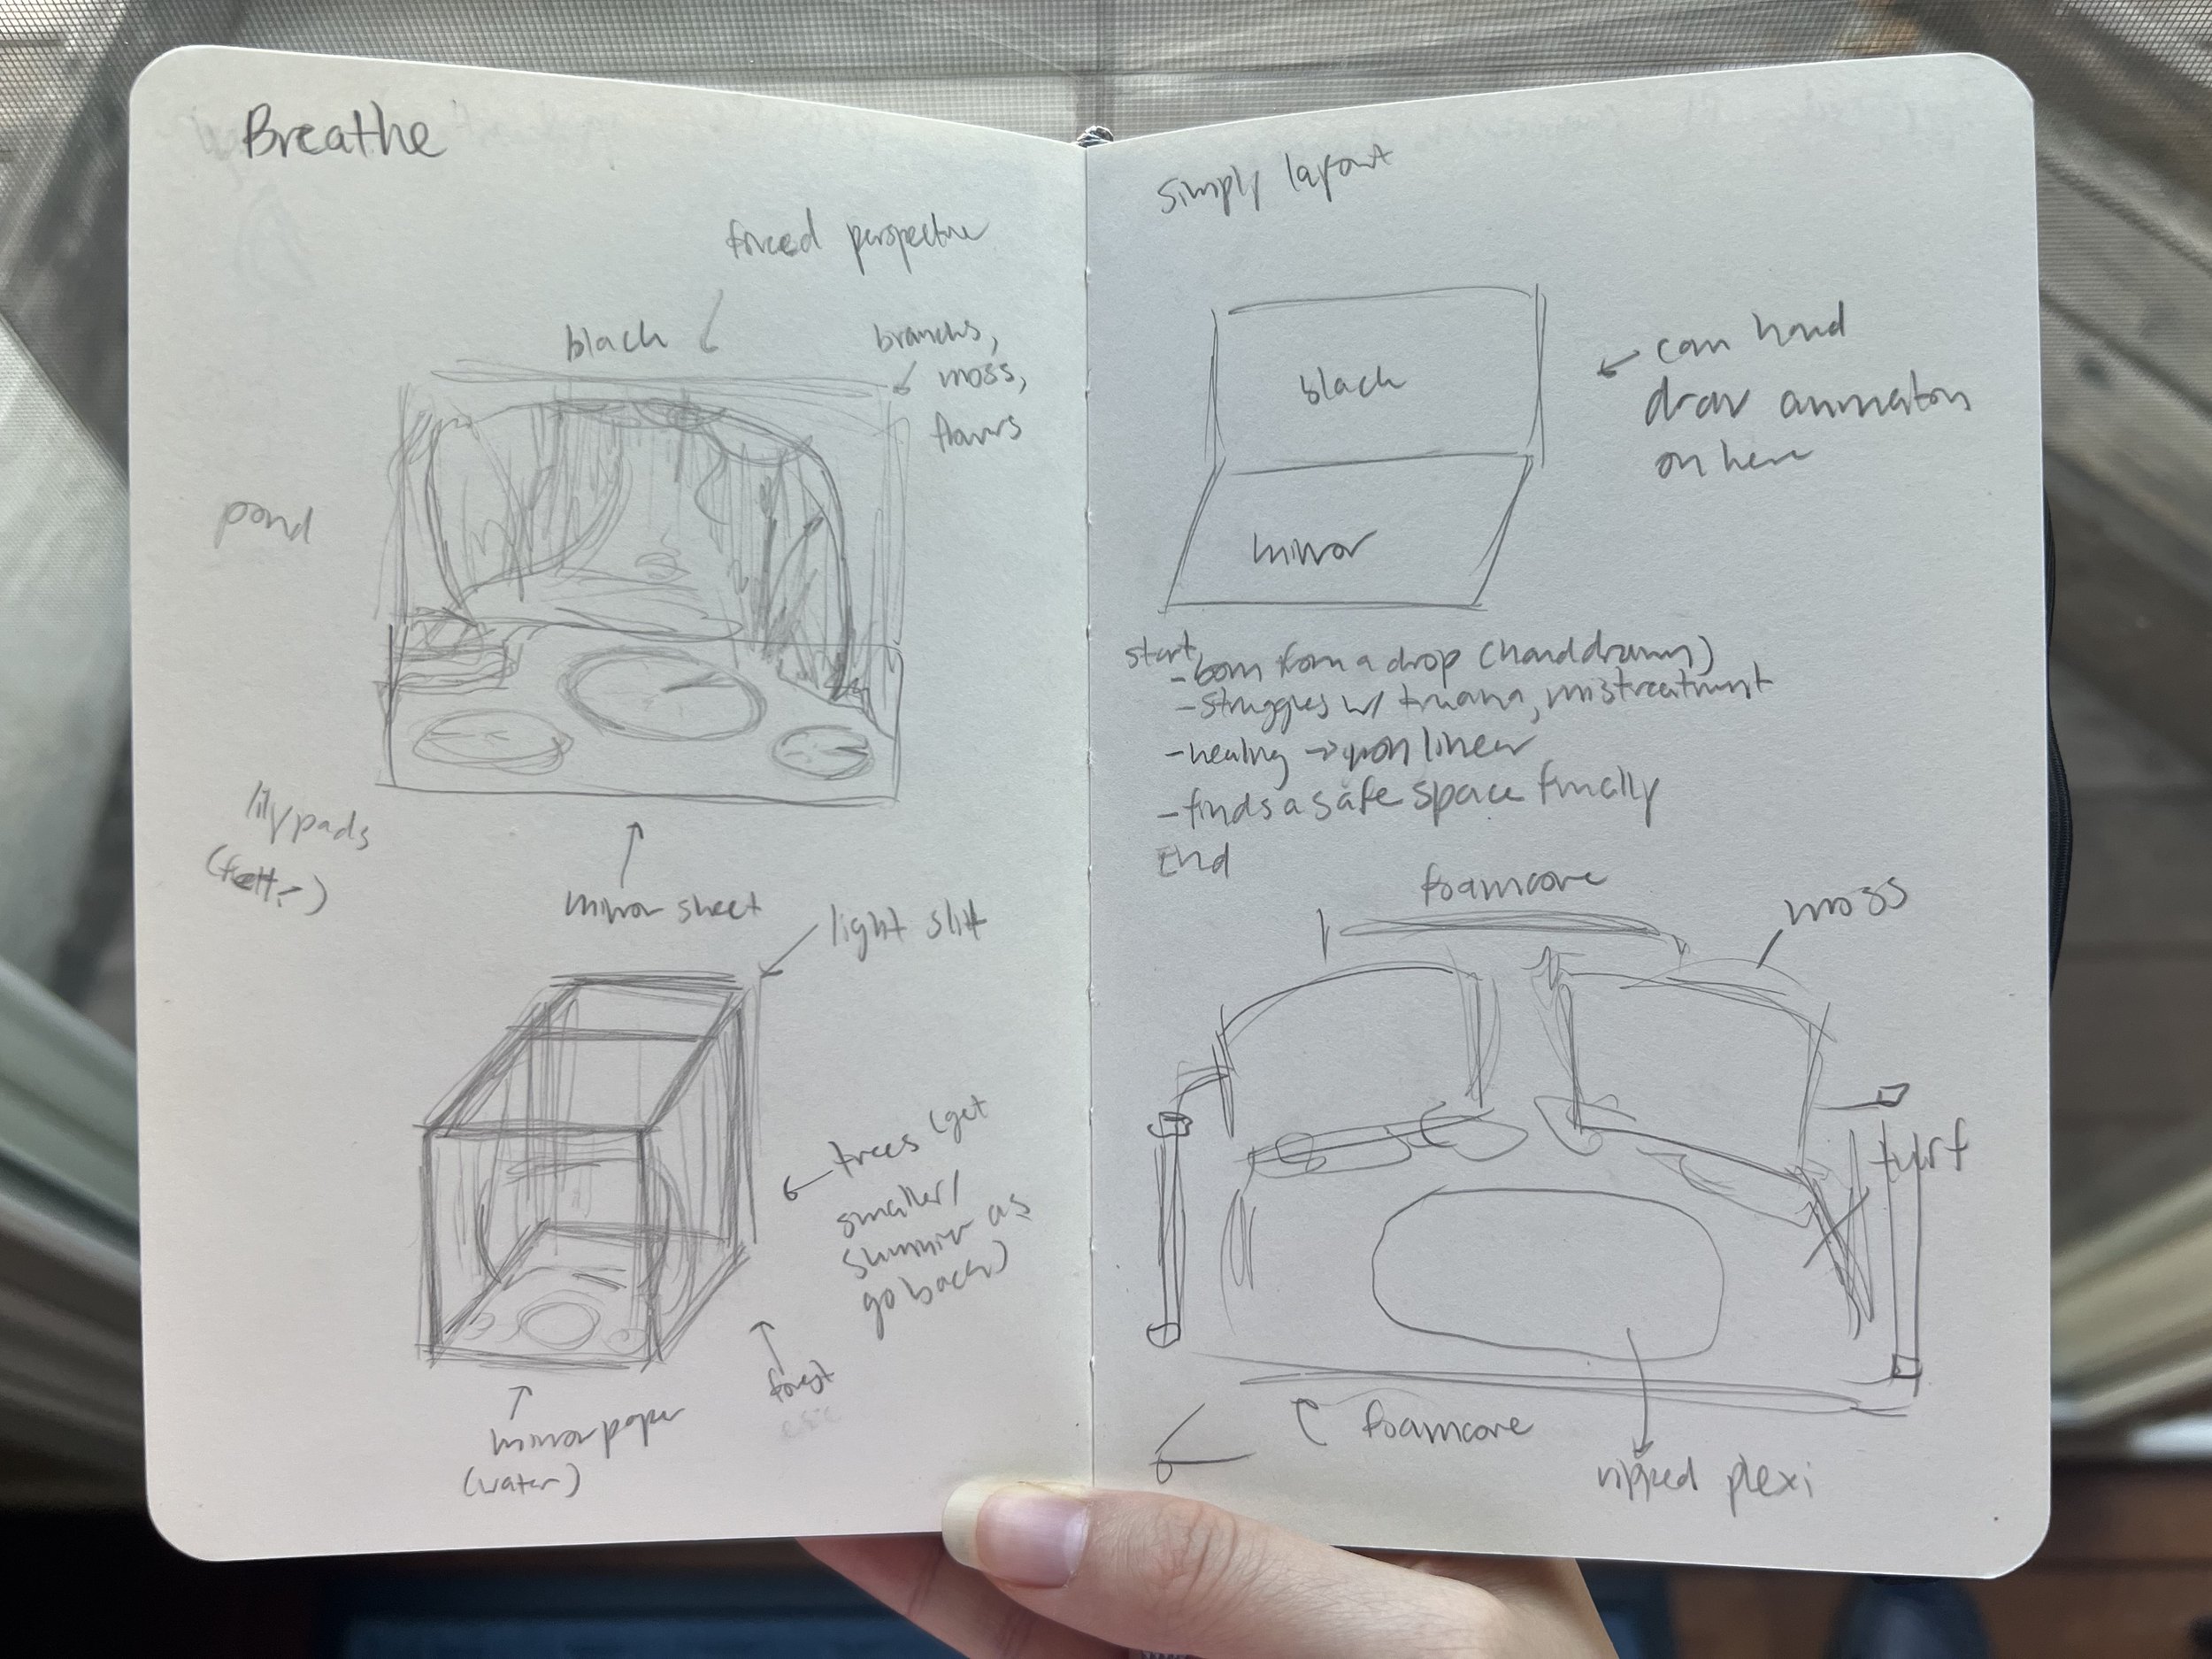 Breathe
forced perspective
black
branches,
moss,
flowers
pond
lilypads
(felt?)
mirror sheet
light slit
trees (get
smaller/
skinnier as
go back)
forest
mirror paper
(water)
simply layout
black
can hand
draw animation
on here
mirror
start
- born from a drop (handdrawn)
- struggles w/ truama, mistreatment
- healing → non linear
- finds a safe space finally
End
foamcore
moss
turf
foamcore
ripped plexi